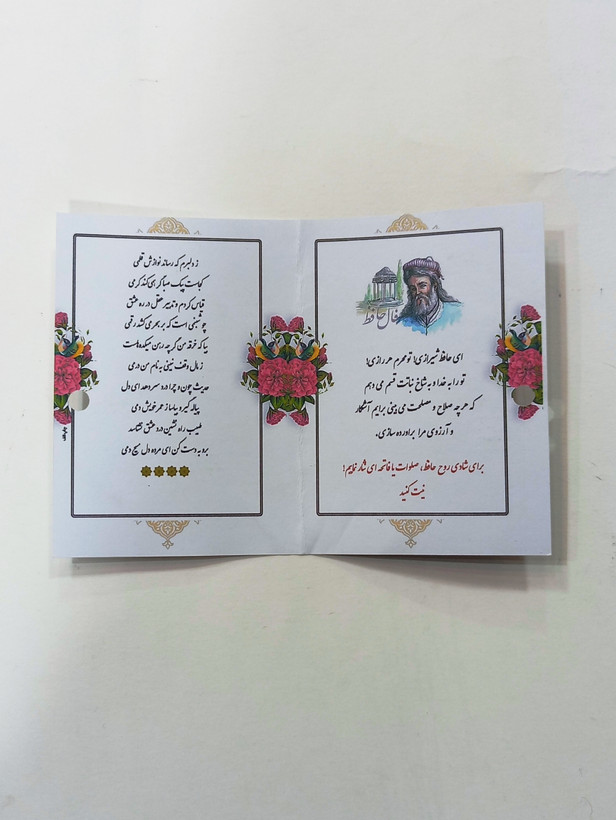 فال حافظ
ای حافظ شیرازی! تو محرم هر رازی!
تو را به خدا و به شاخ نباتت قسم می دهم
که هر چه صلاح و مصلحت می بینی برایم آشکار
و آرزوی مرا براورده سازی.
برای شادی روح حافظ، صلوات یا فاتحه ای نثار نماییم!
نیت کنید
ز دلبرم که رساند نوازش قلمی
کجاست پیک صبا گر همی کند کرمی
قیاس کردم و تدبیر عقل در ره عشق
چو شبنمی است که بر بحر می کشد رقمی
بیا که خرقه من گرچه رهن میکده هاست
ز مال وقف نبینی به نام من درمی
حدیث چون و چرا درد سر دهد ای دل
پیاله گیر و بیاساز عمر خویش دمی
طبیب راه نشین درد عشق نشناسد
برو به دست کن ای مرده دل مسیح دمی